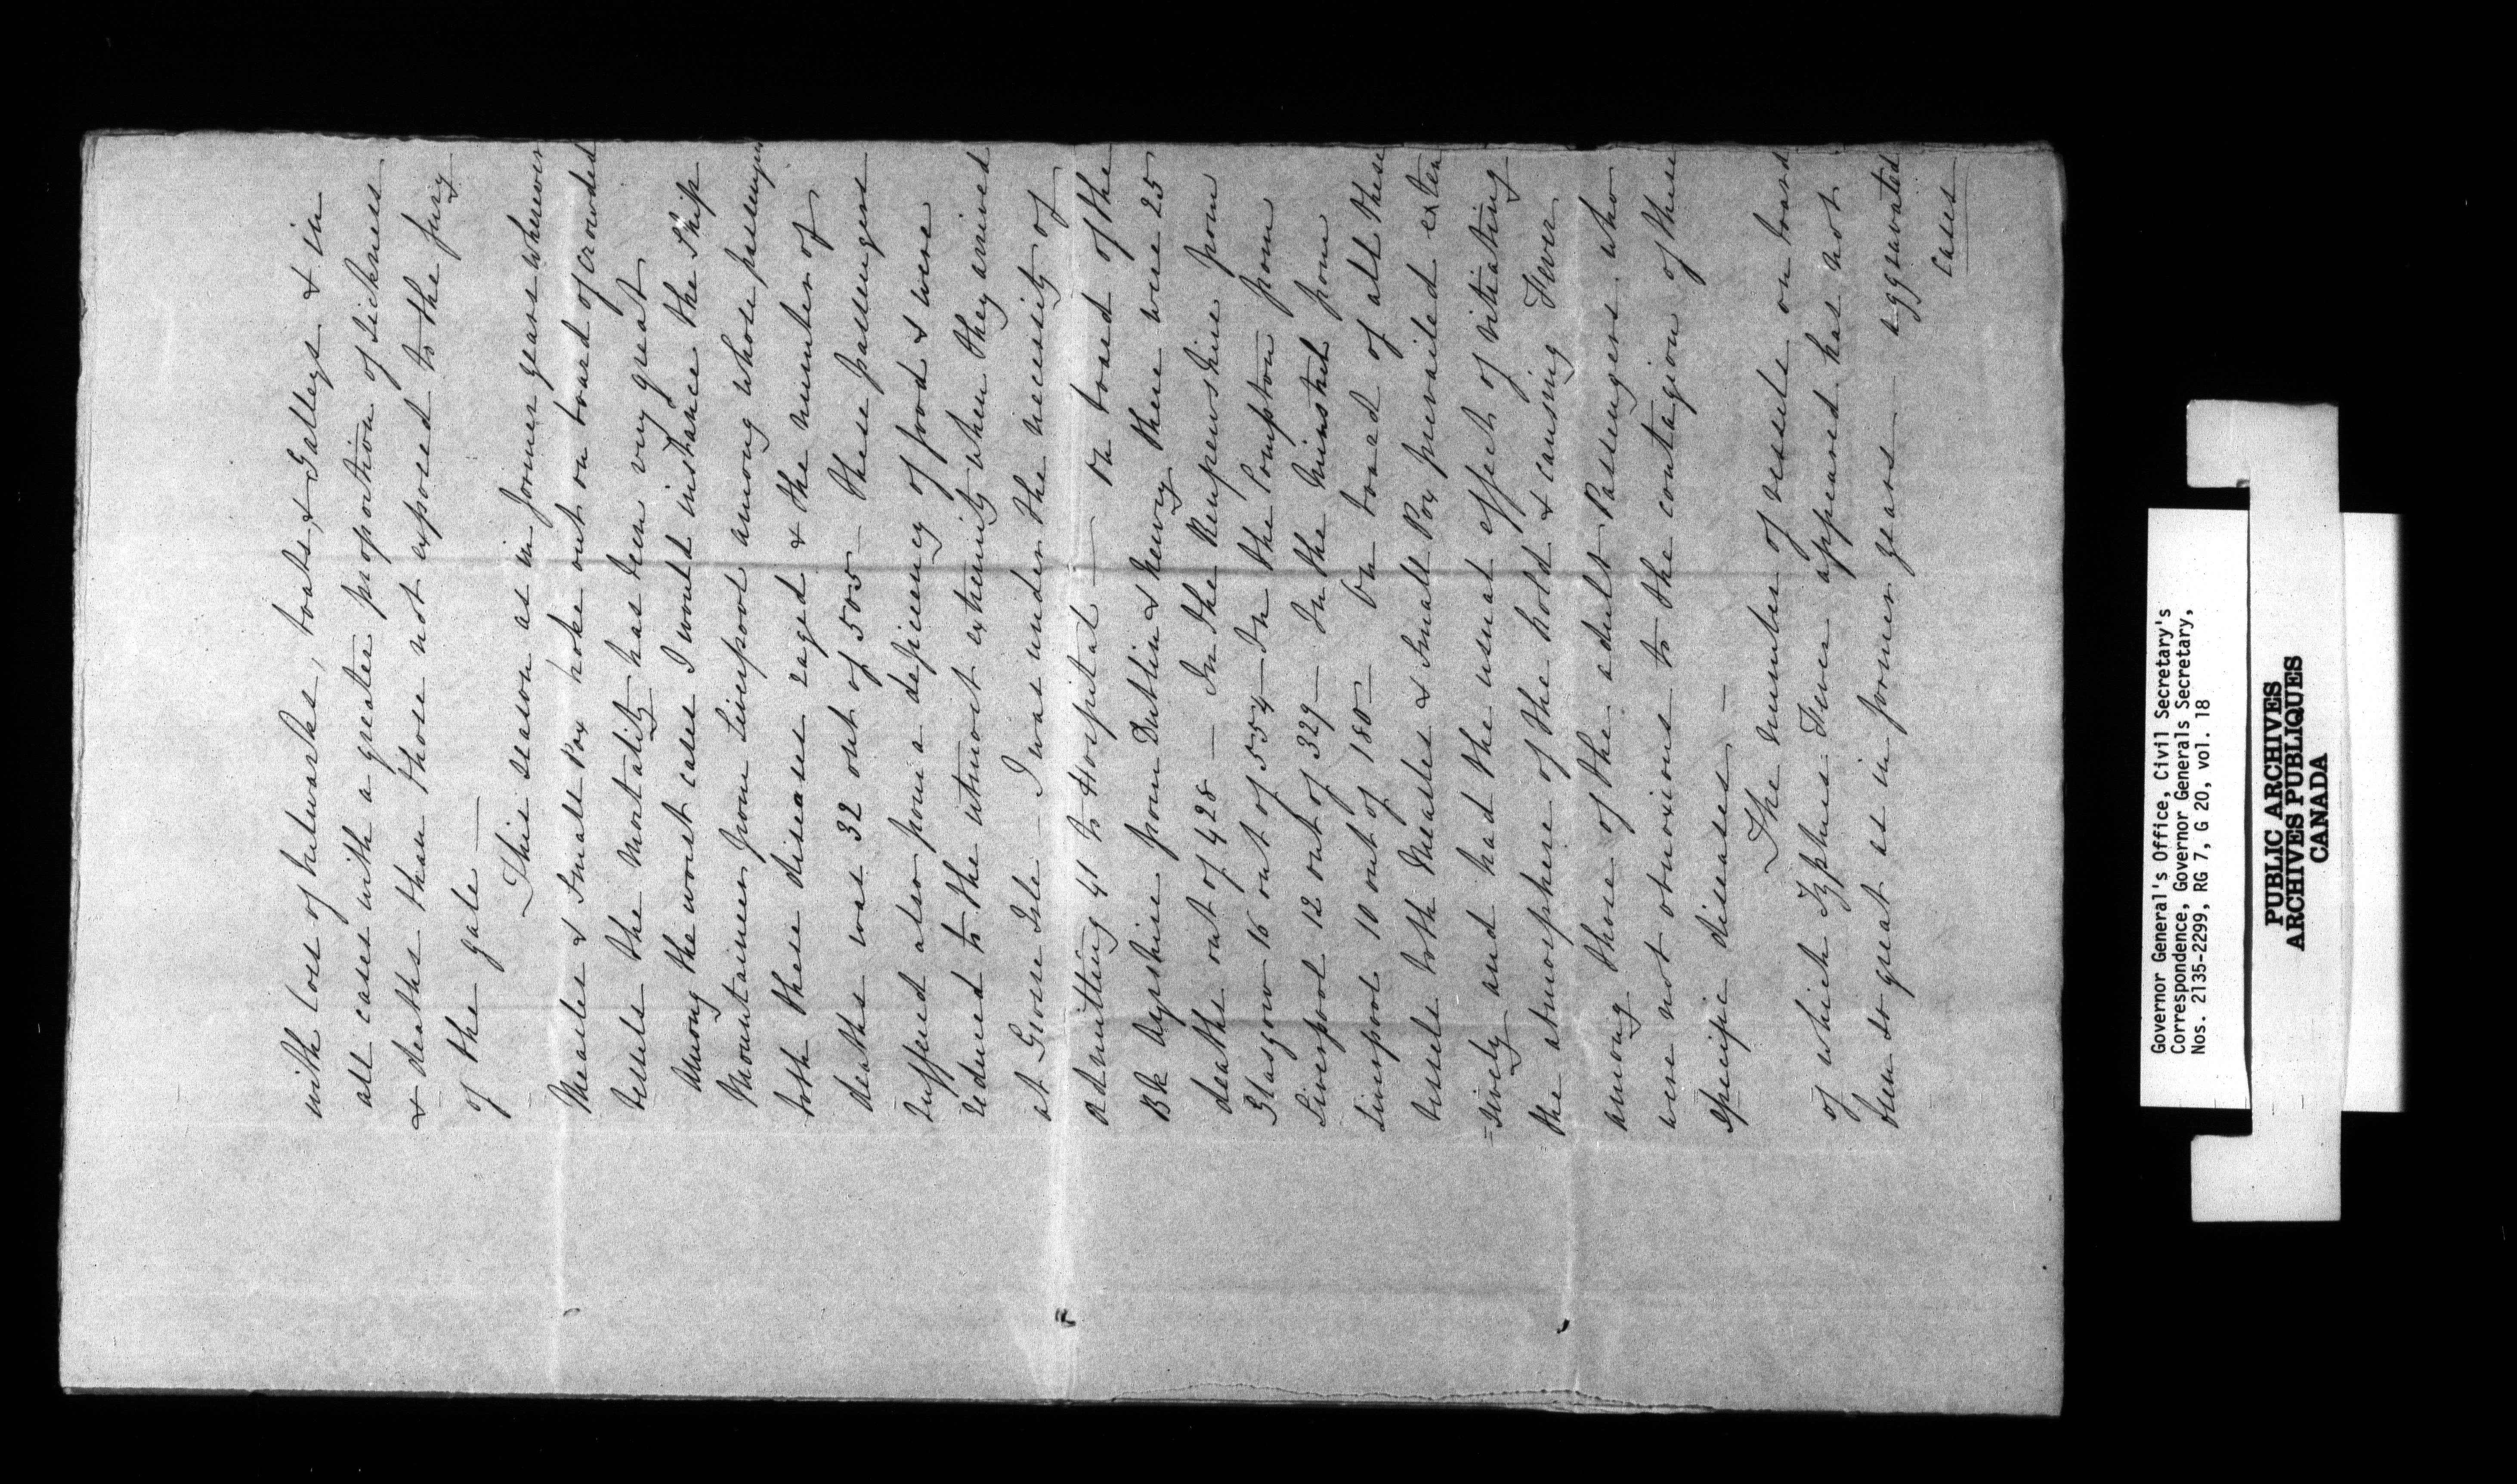 with loss of bulwarks, boats, & Galleys & in
all cases with a greater proportion of sickness
& deaths than those not exposed to the fury
of the gale —
This season as in former years wherever
Measles & Small Pox broke out on board of crowded
vessels the mortality has been very great
Among the worst cases I would instance the Ship
Mountaineer from Liverpool among whose passengers
both these diseases raged & the number of
deaths was 32 out of 505 — these passengers
suffered also from a deficiency of food & were
reduced to the utmost extremity when they arrived
at Grosse Isle — I was under the necessity of
admitting 41 to Hospital — On board of the
Bk Ayrshire from Dublin & Newry there were 25
deaths out of 428 — In the Renfrewshire from
Glasgow 16 out of 554 — In the Compton from
Liverpool 12 out of 329 — In the Minstrel from
Liverpool 10 out of 180 — On board of all these
vessels both Measles & Small Pox prevailed exten
=sively and had the usual effect of vitiating
the atmosphere of the hold & causing Fever
among those of the adult Passengers who
were not obnoxious to the contagion of these
specific diseases —
The number of vessels on board
of which Typhus Fever appeared has not
been so great as in former years —
aggravated
cases
Governor General's Office, Civil Secretary's
Correspondence, Governor Generals Secretary,
Nos. 2135-2299, RG 7, G 20, vol. 18
PUBLIC ARCHIVES
ARCHIVES PUBLIQUES
CANADA